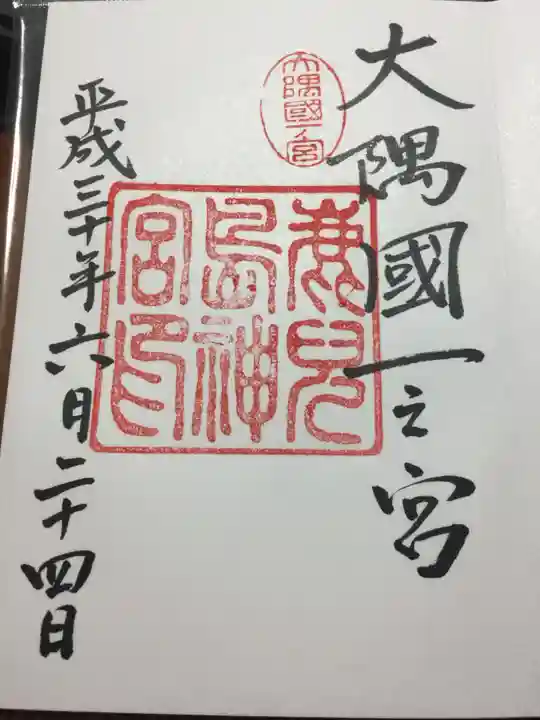 大隅國一之宮
大隅國一宮
鹿兒
島神
宮印
平成三十年六月二十四日